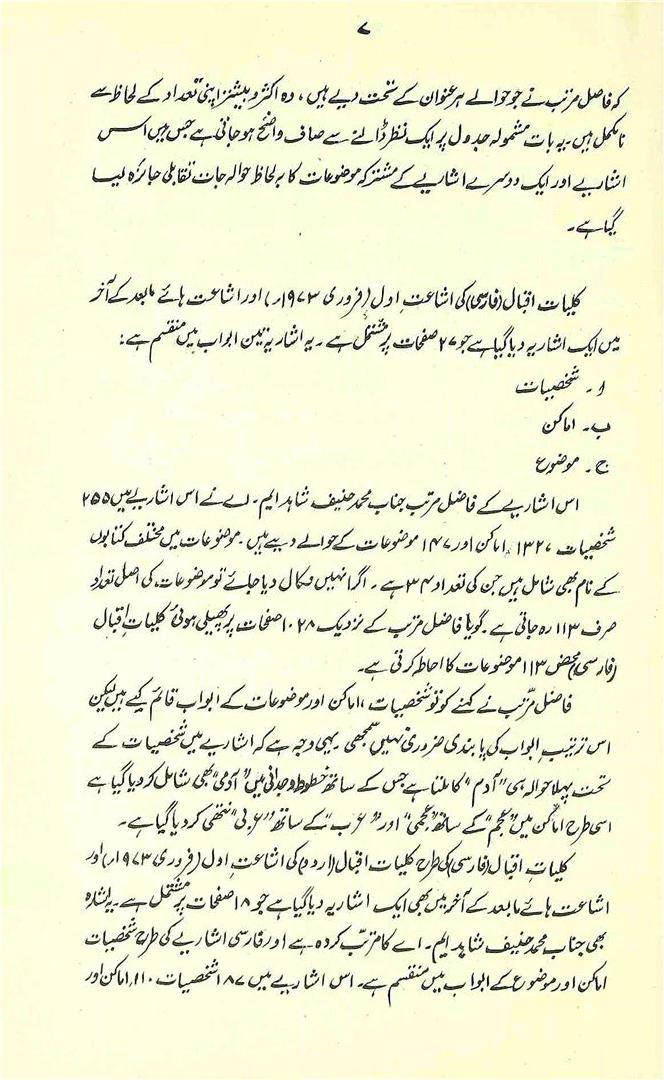 ۷
کہ فاضل مرتب نے جو حوالے ہر عنوان کے تحت دیے ہیں، وہ اکثر و بیشتر اپنی تعداد کے لحاظ سے
نامکمل ہیں۔ یہ بات مشمولہ جدول پر ایک نظر ڈالنے سے صاف واضح ہو جاتی ہے جس میں اس
اشاریے اور ایک دوسرے اشاریے کے مشترکہ موضوعات کا بہ لحاظ حوالہ جات تقابلی جائزہ لیا
گیا ہے۔
کلیات اقبال (فارسی) کی اشاعتِ اول (فروری ۱۹۷۳ء) اور اشاعت ہائے مابعد کے آخر
میں ایک اشاریہ دیا گیا ہے جو ۲۷ صفحات پر مشتمل ہے۔ یہ اشاریہ تین ابواب میں منقسم ہے:
ا۔ شخصیات
ب۔ اماکن
ج۔ موضوع
اس اشاریے کے فاضل مرتب جناب محمد حنیف شاہد ایم۔ اے نے اس اشاریے میں ۲۵۵
شخصیات ۱۳۲۷ اماکن اور ۱۴۷ موضوعات کے حوالے دیے ہیں۔ موضوعات میں مختلف کتابوں
کے نام بھی شامل ہیں جن کی تعداد ۳۴ ہے۔ اگر انہیں نکال دیا جائے تو موضوعات کی اصل تعداد
صرف ۱۱۳ رہ جاتی ہے۔ گویا فاضل مرتب کے نزدیک ۱۰۲۸ صفحات پر پھیلی ہوئی کلیاتِ اقبال
(فارسی) محض ۱۱۳ موضوعات کا احاطہ کرتی ہے۔
فاضل مرتب نے کہنے کو تو شخصیات، اماکن اور موضوعات کے ابواب قائم کیے ہیں لیکن
اس ترتیبِ ابواب کی پابندی ضروری نہیں سمجھی۔ یہی وجہ ہے کہ اشاریے میں شخصیات کے
تحت پہلا حوالہ ہی "آدم" کا ملتا ہے جس کے ساتھ خطوط وحدانی میں "آدمی" بھی شامل کر دیا گیا ہے
اسی طرح اماکن میں "عجم" کے ساتھ "عجمی" اور "عرب" کے ساتھ "عربی" نتھی کر دیا گیا ہے۔
کلیاتِ اقبال (فارسی) کی طرح کلیات اقبال (اردو) کی اشاعت اول (فروری ۱۹۷۳ء) اور
اشاعت ہائے مابعد کے آخر میں بھی ایک اشاریہ دیا گیا ہے جو ۱۸ صفحات پر مشتمل ہے۔ یہ اشاریہ
بھی جناب محمد حنیف شاہد ایم۔ اے کا مرتب کردہ ہے اور فارسی اشاریے کی طرح شخصیات
اماکن اور موضوع کے ابواب میں منقسم ہے۔ اس اشاریے میں ۱۸۷ شخصیات ۱۱۰ اماکن اور